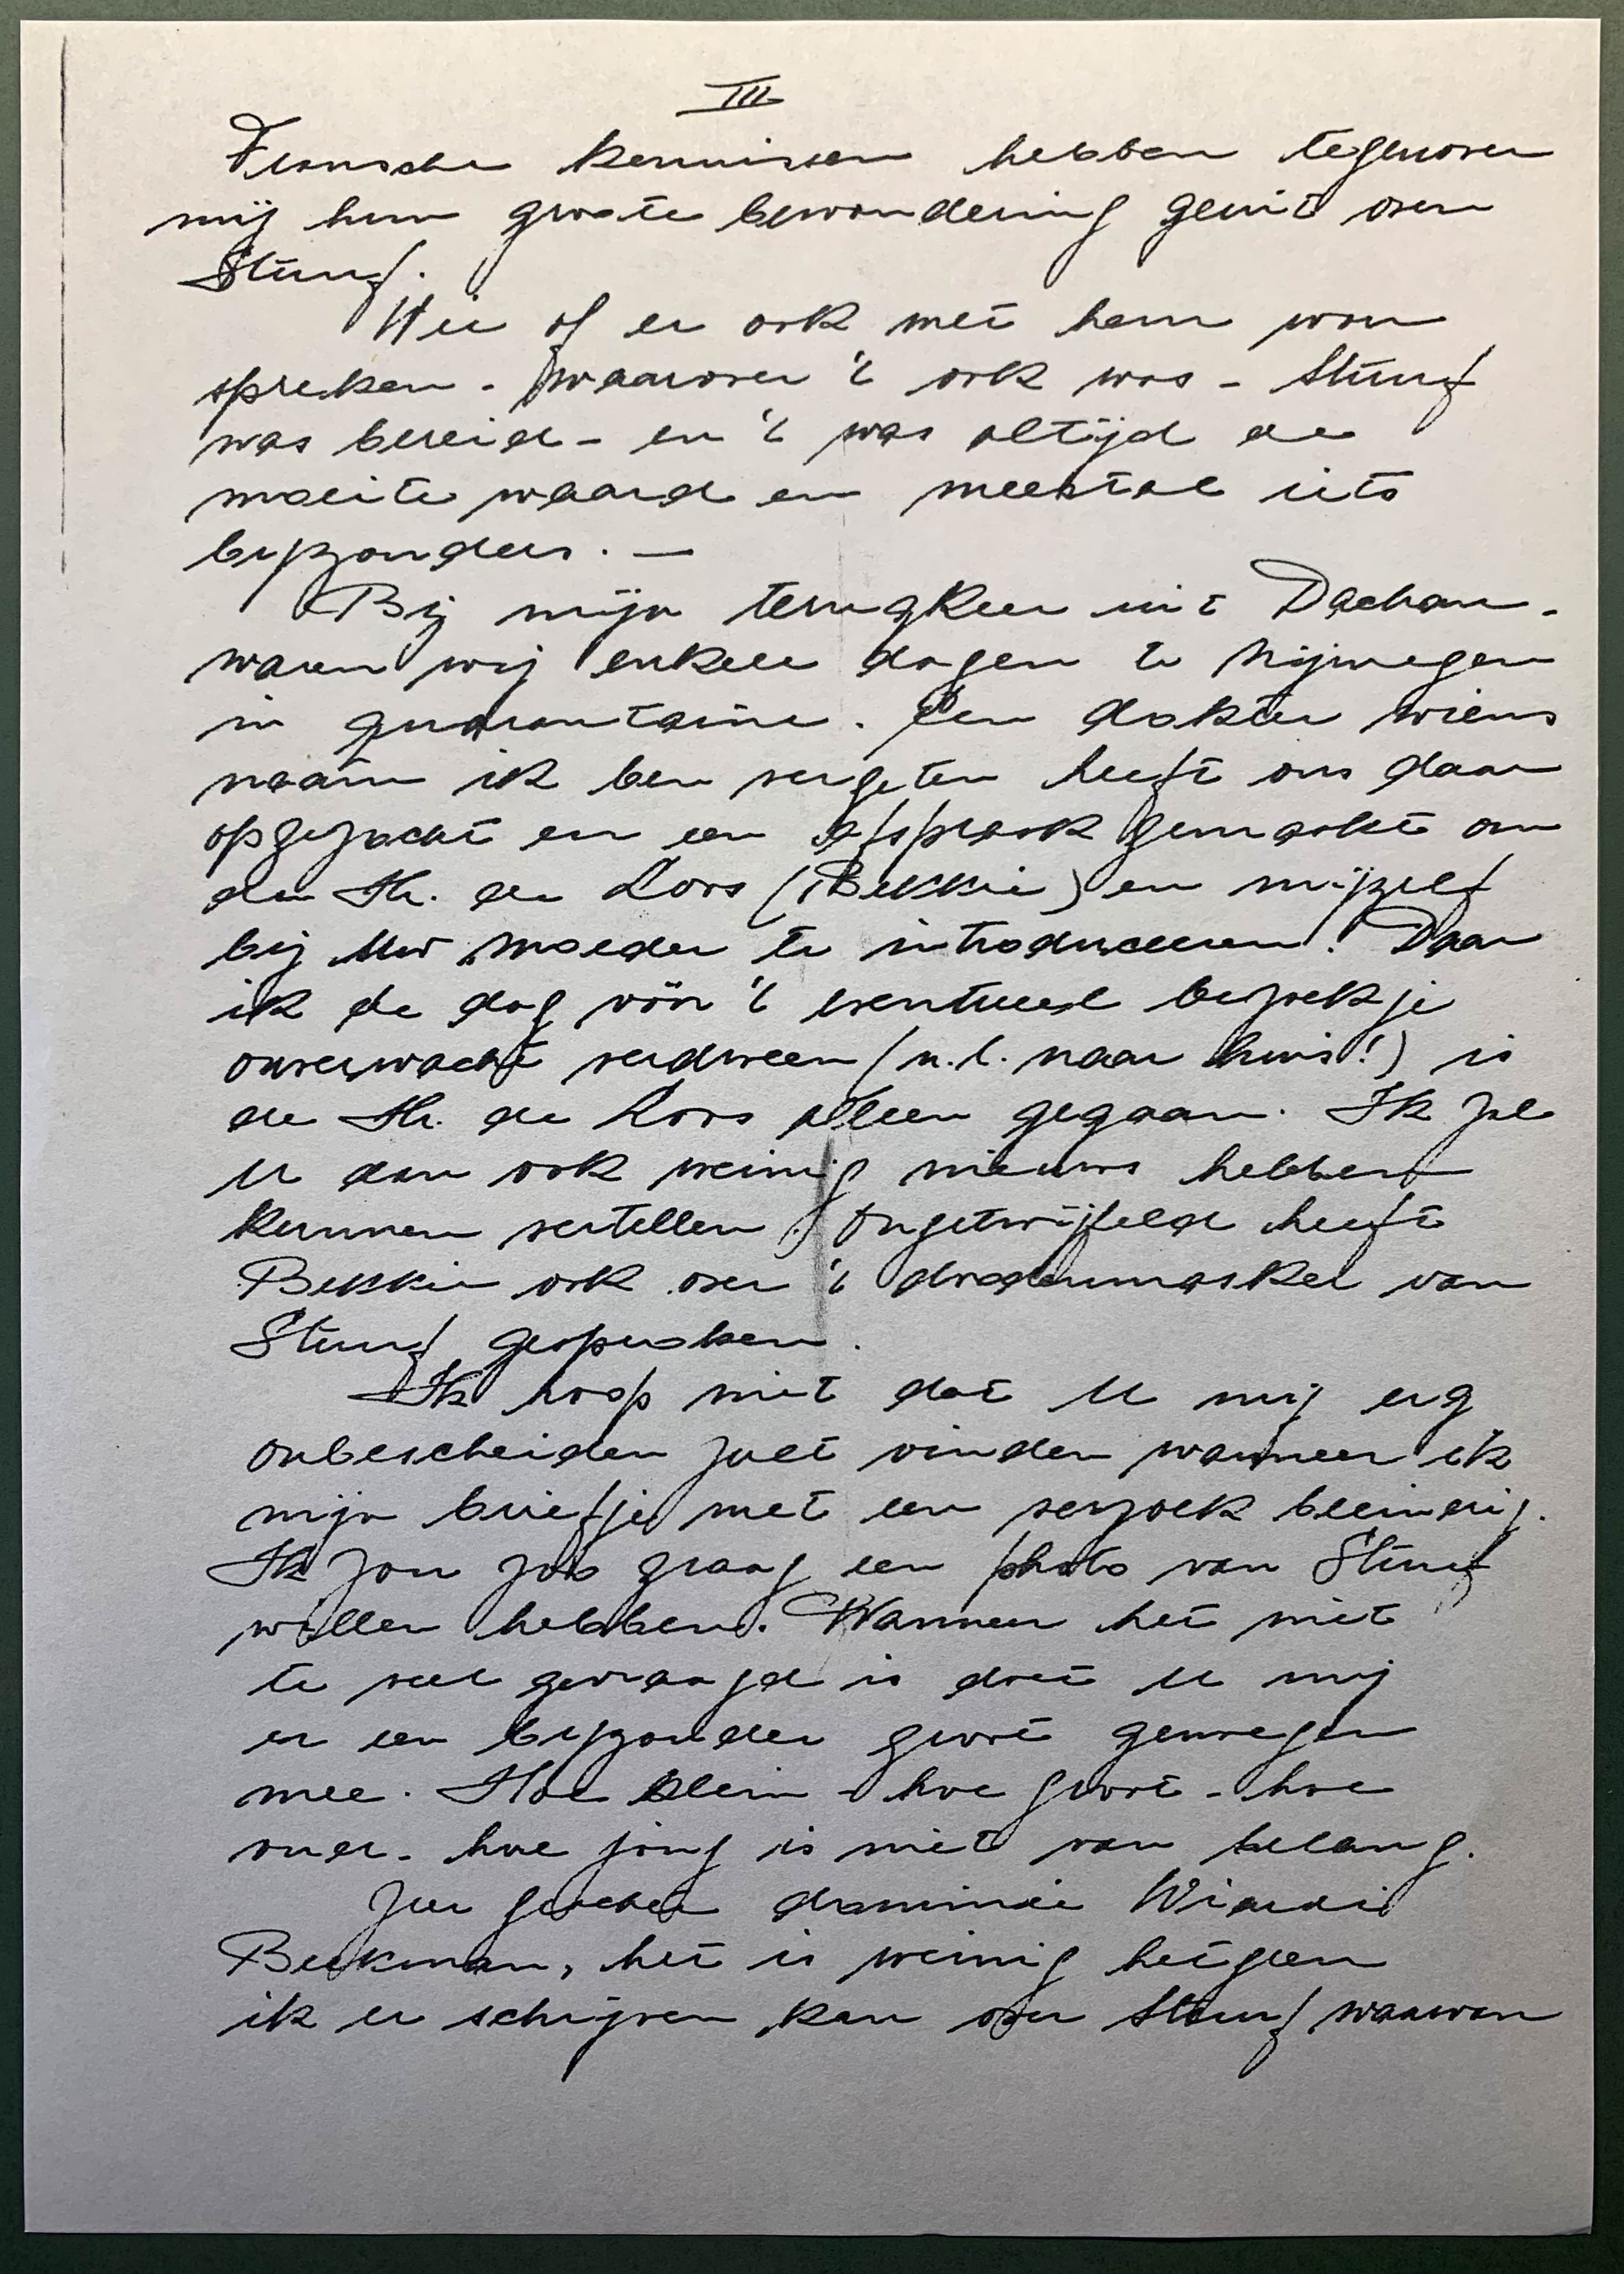 III
Fransche kennissen hebben tegenover
mij hun groote bewondering geuit over
Stuuf.
Wie of er ook met hem wou
spreken - waarover 't ook was - Stuuf
was bereid - en 't was altijd de
moeite waard en meestal iets
bijzonders. —
Bij mijn terugkeer uit Dachau -
waren wij enkele dagen te Nijmegen
in quarantaine. Een dokter wiens
naam ik ben vergeten heeft ons daar
opgezocht en een afspraak gemaakt om
den Hr. de Loos (Bekkie) en mijzelf
bij Uw moeder te introduceeren. Daar
ik de dag vóór 't eventueel bezoekje
onverwacht verdween (n.l. naar huis!) is
de Hr. de Loos alleen gegaan. Ik zal
U dan ook weinig nieuws hebben
kunnen vertellen. Ongetwijfeld heeft
Bekkie ook over 't doodenmasker van
Stuuf gesproken.
Ik hoop niet dat U mij erg
onbescheiden zult vinden wanneer ik
mijn briefje met een verzoek beeindig.
Ik zou zoo graag een photo van Stuuf
willen hebben. Wanneer het niet
te veel gevraagd is doet U mij
er een bijzonder groot genoegen
mee. Hoe klein - hoe groot - hoe
oud - hoe jong is niet van belang.
Zeer geachte dominee Wiardi
Beckman, het is weinig hetgeen
ik er schrijven kan over Stuuf waarvan